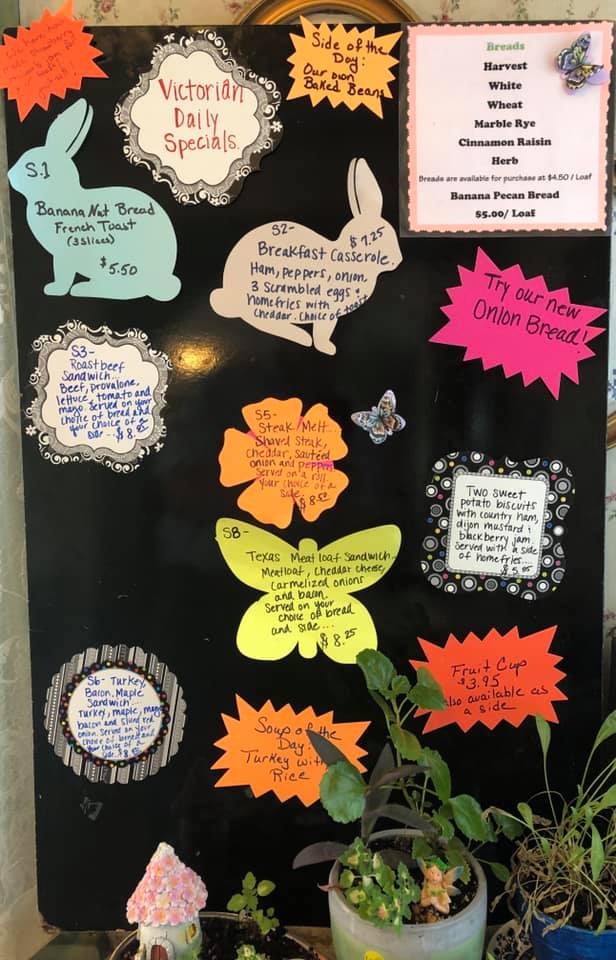 Victorian
Daily
Specials.
Side of the
Day:
Our own
Baked Beans
Breads
Harvest
White
Wheat
Marble Rye
Cinnamon Raisin
Herb
Breads are available for purchase at $4.50 / Loaf
Banana Pecan Bread
$5.00/ Loaf
S.1
Banana Nut Bread
French Toast
(3 slices)
$5.50
S2-
$7.25
Breakfast Casserole.
Ham, peppers, onion,
3 scrambled eggs &
homefries with
cheddar. Choice of toast
Try our new
Onion Bread!
S3-
Roast beef
Sandwich...
Beef, provalone,
lettuce, tomato and
mayo. Served on your
choice of bread and
your choice of a
side...$8.25
S5-
Steak Melt...
Shaved Steak,
Cheddar, sautéed
onion and peppers
Served on a roll,
your choice of a
side.
$8.50
Two sweet
potato biscuits
with country ham,
dijon mustard &
blackberry jam.
Served with a side
of homefries....
S8-
Texas Meatloaf Sandwich-
Meatloaf, cheddar cheese,
carmelized onions
and bacon.
Served on your
choice of bread
and side...
$8.25
S6- Turkey,
Bacon, Maple
Sandwich...
Turkey, maple, mayo
bacon and sliced red
onion. Served on your
choice of bread and
your choice of a
side.
Fruit Cup
$3.95
also available as
a side
Soup of the
Day:
Turkey with
Rice